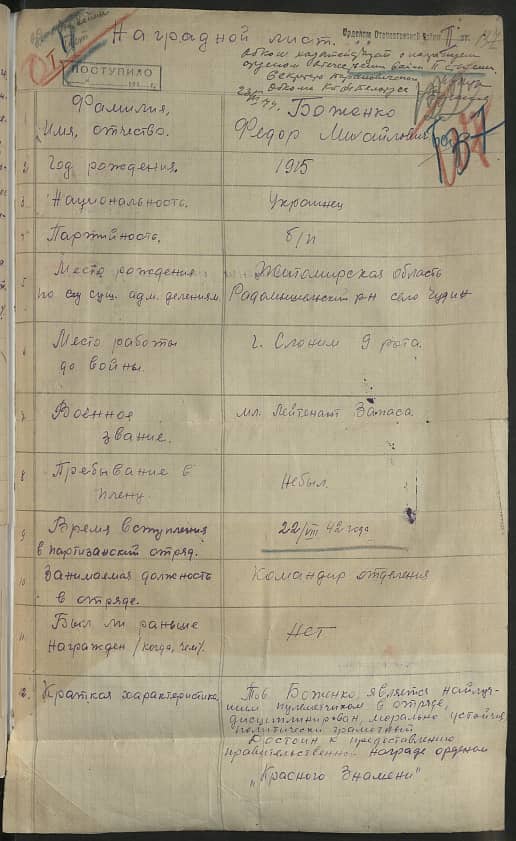 Наградной лист.
Орденом Отечественной войны II ст.
137
ПОСТУПИЛО
Обком
орденом Отечественной войны II степени.
Секретарь Барановичского
обкома КП(б) Белоруссии
Фамилия, Боженко
Имя, отчество. Федор Михайлович
2 Год рождения. 1915
3 Национальность. Украинец
4 Партийность. б/п
5 Место рождения Житомирская область
по сущ. адм. делениям Радомышльский р-н село Чудин
6 Место работы г. Слоним 9 рота.
до войны.
7 Военное мл. Лейтенант Запаса.
звание.
8 Пребывание в Небыл.
плену.
9 Время вступления 22/VIII 42 года
в партизанский отряд.
10 Занимаемая должность Командир отделения
в отряде.
11 Был ли раньше Нет
награжден /когда, чем/.
12. Краткая характеристика. Тов. Боженко, является найлуч-
шим пулеметчиком в отряде,
дисциплинирован, морально устойчив,
политически грамотный
Достоин к предоставлению
правительственной награде орденом
„Красного Знамени"